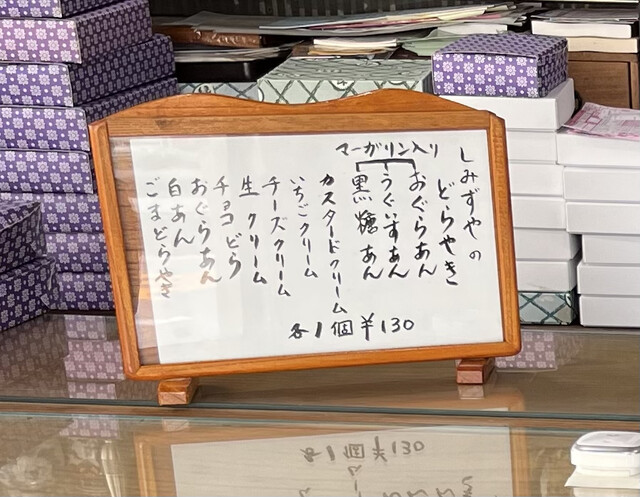 しみずやの
どらやき
マーガリン入り
おぐらあん
うぐいすあん
黒糖あん
カスタードクリーム
いちごクリーム
チーズクリーム
生クリーム
チョコどら
おぐらあん
白あん
ごまどらやき
各1個¥130